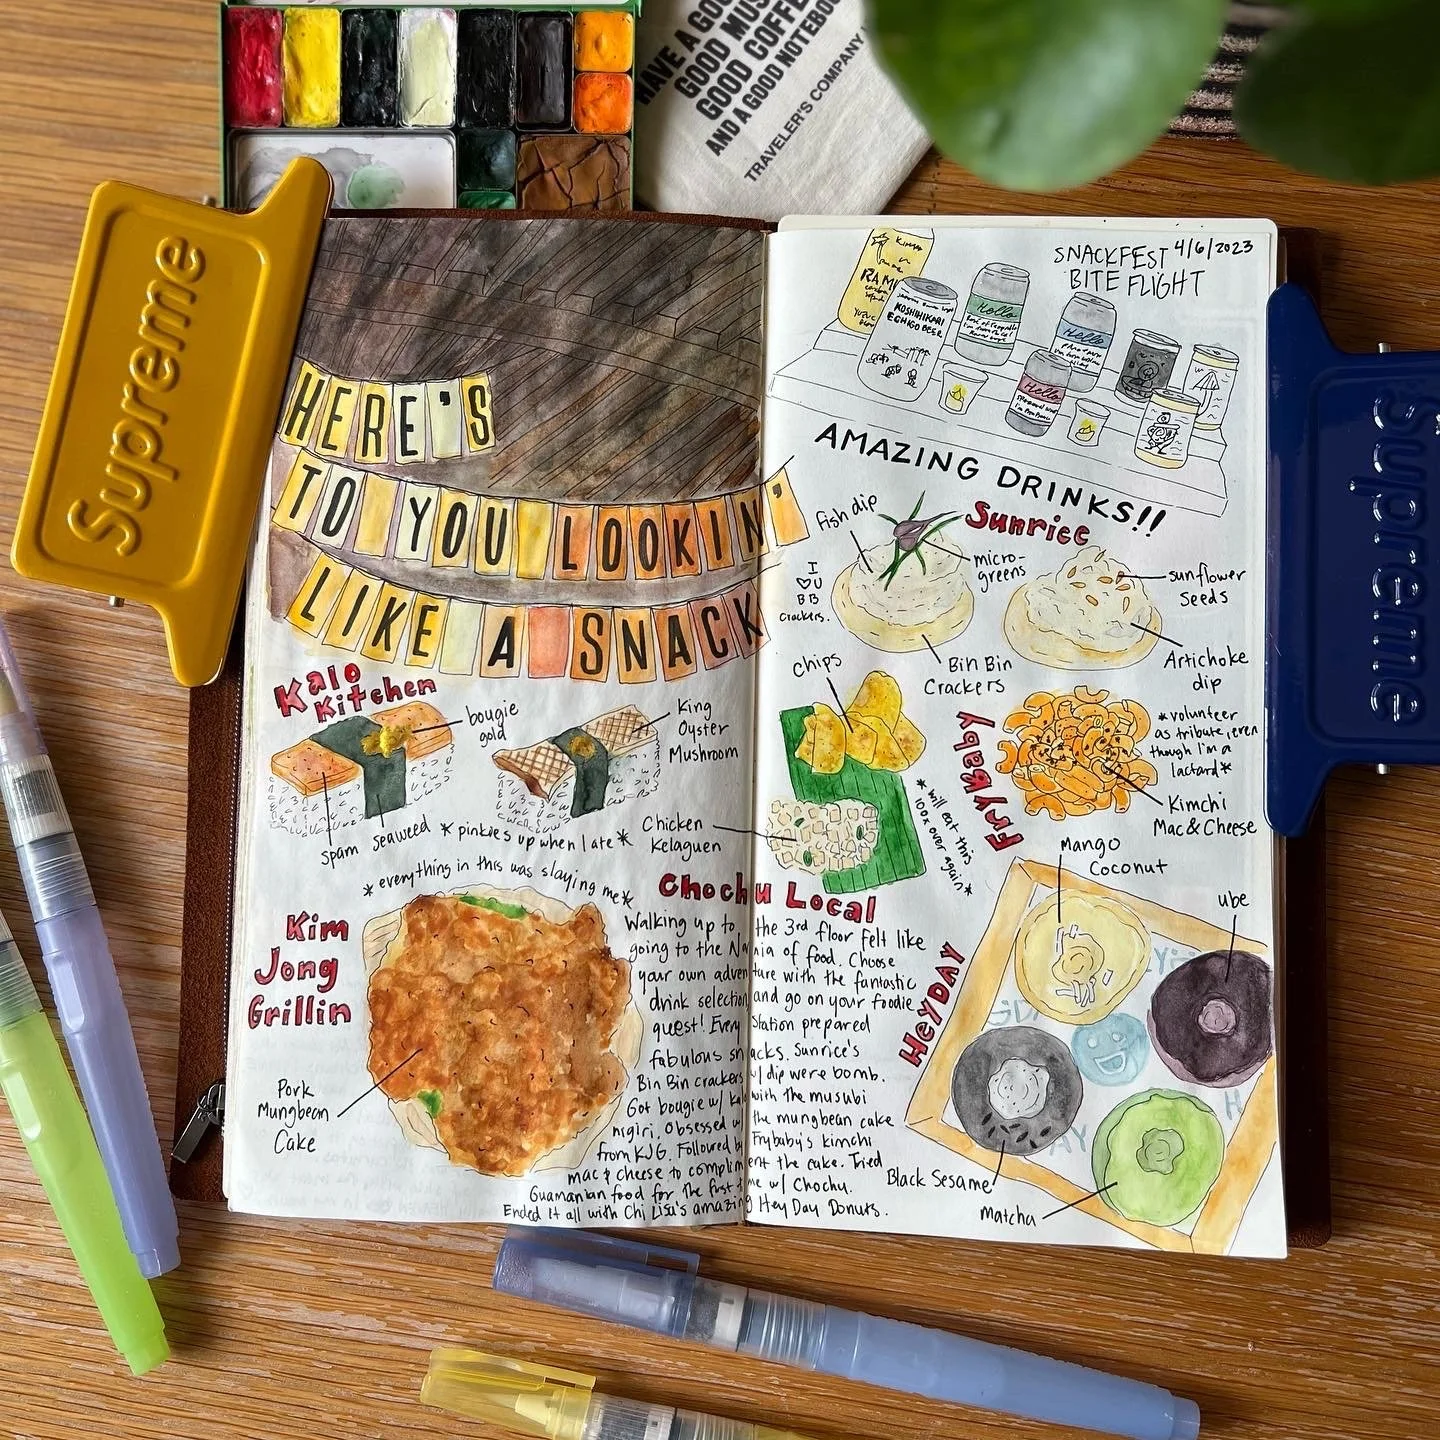 HAVE A GOO
GOOD MUS
GOOD COFFE
AND A GOOD NOTEBOO
TRAVELER'S COMPANY
Supreme
Supreme
HERE'S
TO YOU LOOKIN'
LIKE A SNACK
Kalo
Kitchen
bougie
gold
King
Oyster
Mushroom
spam
seaweed
*pinkies up when I ate*
*everything in this was slaying me*
Kim
Jong
Grillin
Pork
Mungbean
Cake
SNACKFEST 4/6/2023
BITE FLIGHT
KOSHIHIKARI
ECHIGO BEER
Hello
Hello
Hello
AMAZING DRINKS!!
Sunrice
Fish dip
micro-
greens
I
♡ U
BB
crackers.
Bin Bin
Crackers
sunflower
Seeds
Artichoke
dip
chips
Chicken
Kelaguen
*will eat this
100x over again*
FryBaby
*volunteer
as tribute, even
though I'm a
lactard*
Kimchi
Mac & Cheese
Chochu Local
Walking up to the 3rd floor felt like
going to the Narnia of food. Choose
your own adventure with the fantastic
drink selection and go on your foodie
quest! Every Station prepared
fabulous snacks. Sunrice's
Bin Bin crackers w/ dip were bomb.
Got bougie w/ Kalo with the musubi
nigiri. Obsessed w/ the mungbean cake
from KJG. Followed by Frybaby's kimchi
mac & cheese to compliment the cake. Tried
Guamanian food for the first time w/ Chochu.
Ended it all with Chi Lisa's amazing Hey Day Donuts.
HeyDAY
Mango
Coconut
ube
Black Sesame
Matcha